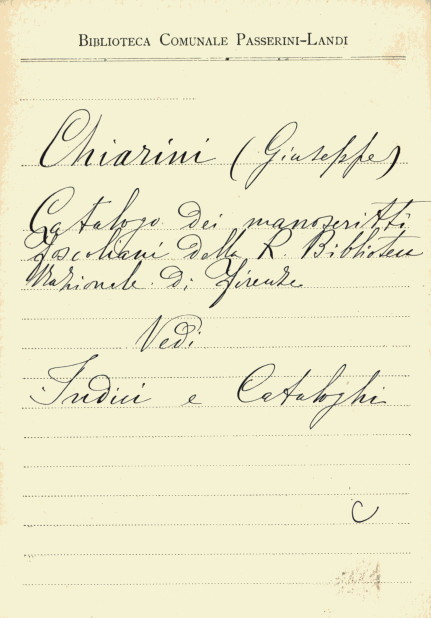 BIBLIOTECA COMUNALE PASSERINI-LANDI
Chiarini (Giuseppe)
Catalogo dei manoscritti
Foscoliani della R. Biblioteca
Nazionale di Firenze
Vedi
Indici e Cataloghi
C